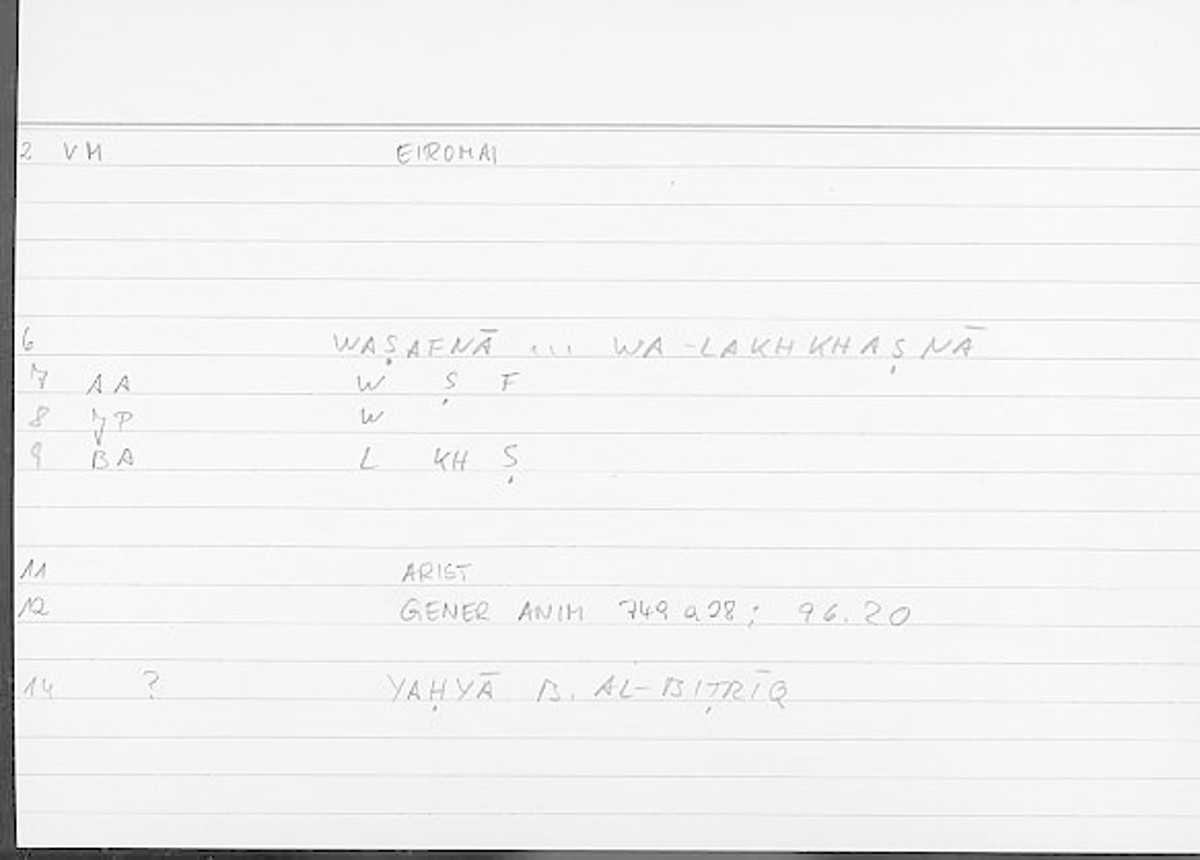 2 VM EIROMAI
6 WAṢAFNĀ ... WA-LAKHKHAṢNĀ
7 AA W Ṣ F
8 JP W
9 BA L KH Ṣ
11 ARIST
12 GENER ANIM 749 a 28; 96.20
14 ? YAḤYĀ B. AL-BIṬRĪQ